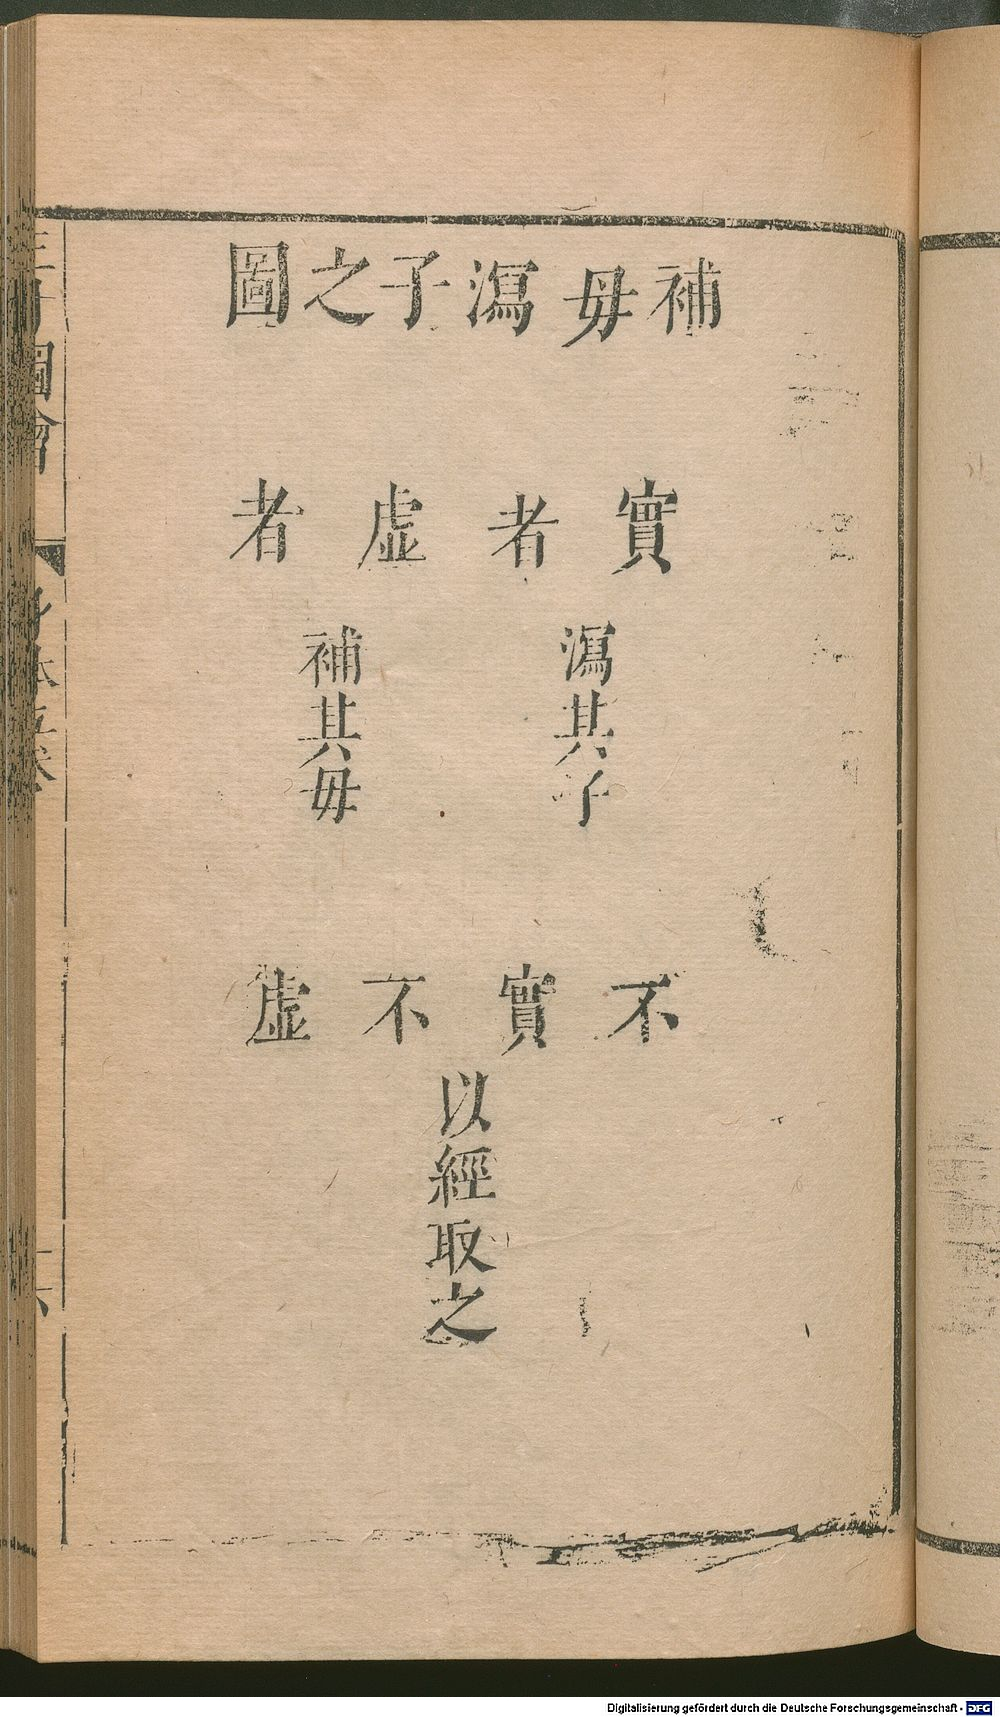 補毋瀉子之圖
實者虛者
瀉其子
補其毋
不實不虛
以經取之
圖會
Digitalisierung gefördert durch die Deutsche Forschungsgemeinschaft - DFG